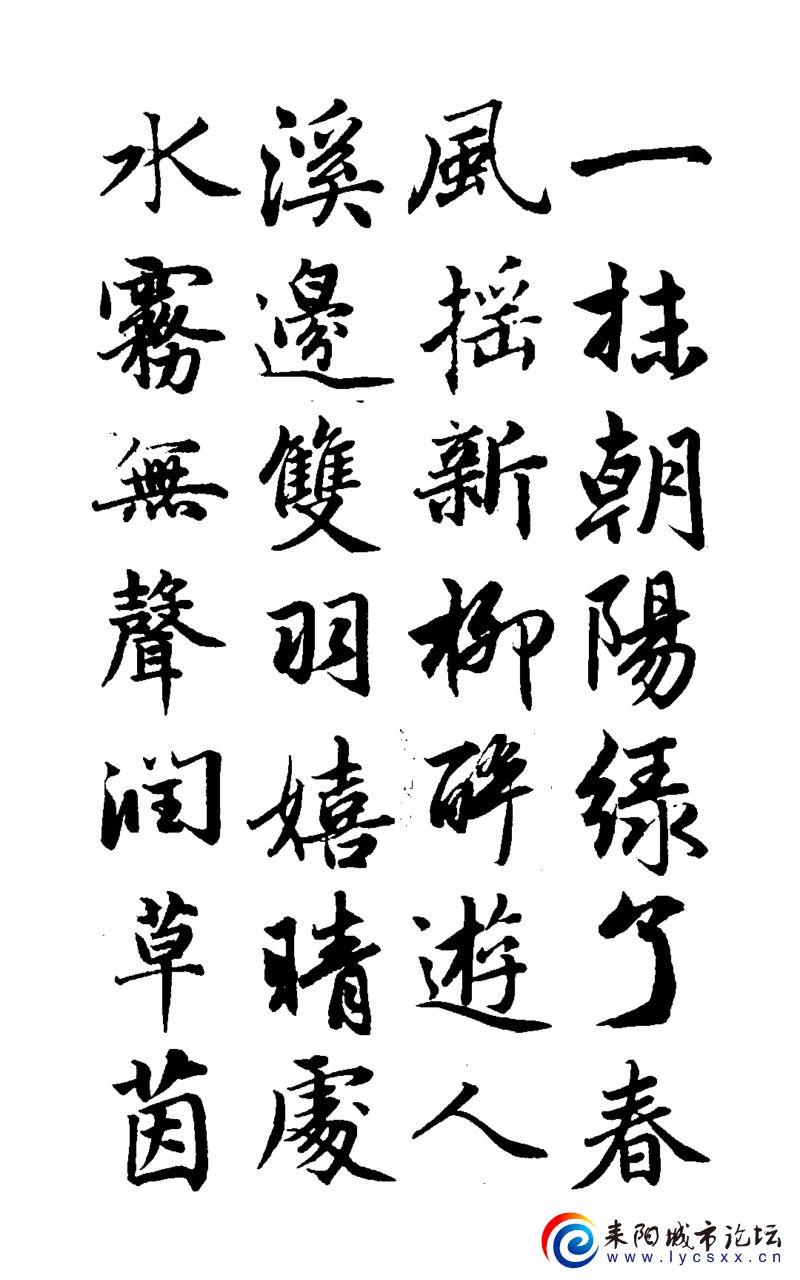 一抹朝陽綠了春
風摇新柳醉遊人
溪邊雙羽嬉晴處
水霧無聲润草茵
耒阳城市论坛
www.lycsxx.cn